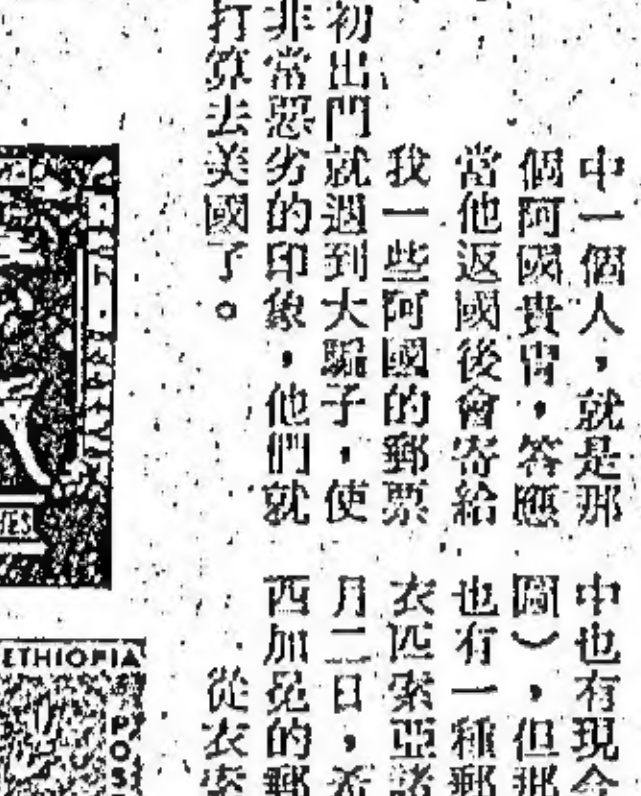 中一個人，就是那
個阿國貴冑，答應
當他返國後會寄給
我一些阿國的郵票
初出門就遇到大騙子，使
非常惡劣的印象，他們就
打算去美國了。
中也有現今
圖），但那
也有一種郵
衣匹索亞諸
月二日，希
西加免的郵
從衣索
ETHIOPIA
POS